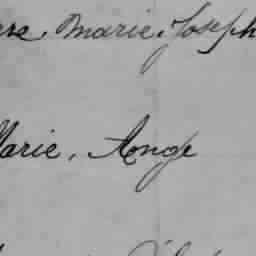 Marie, Joseph
Marie, Ange